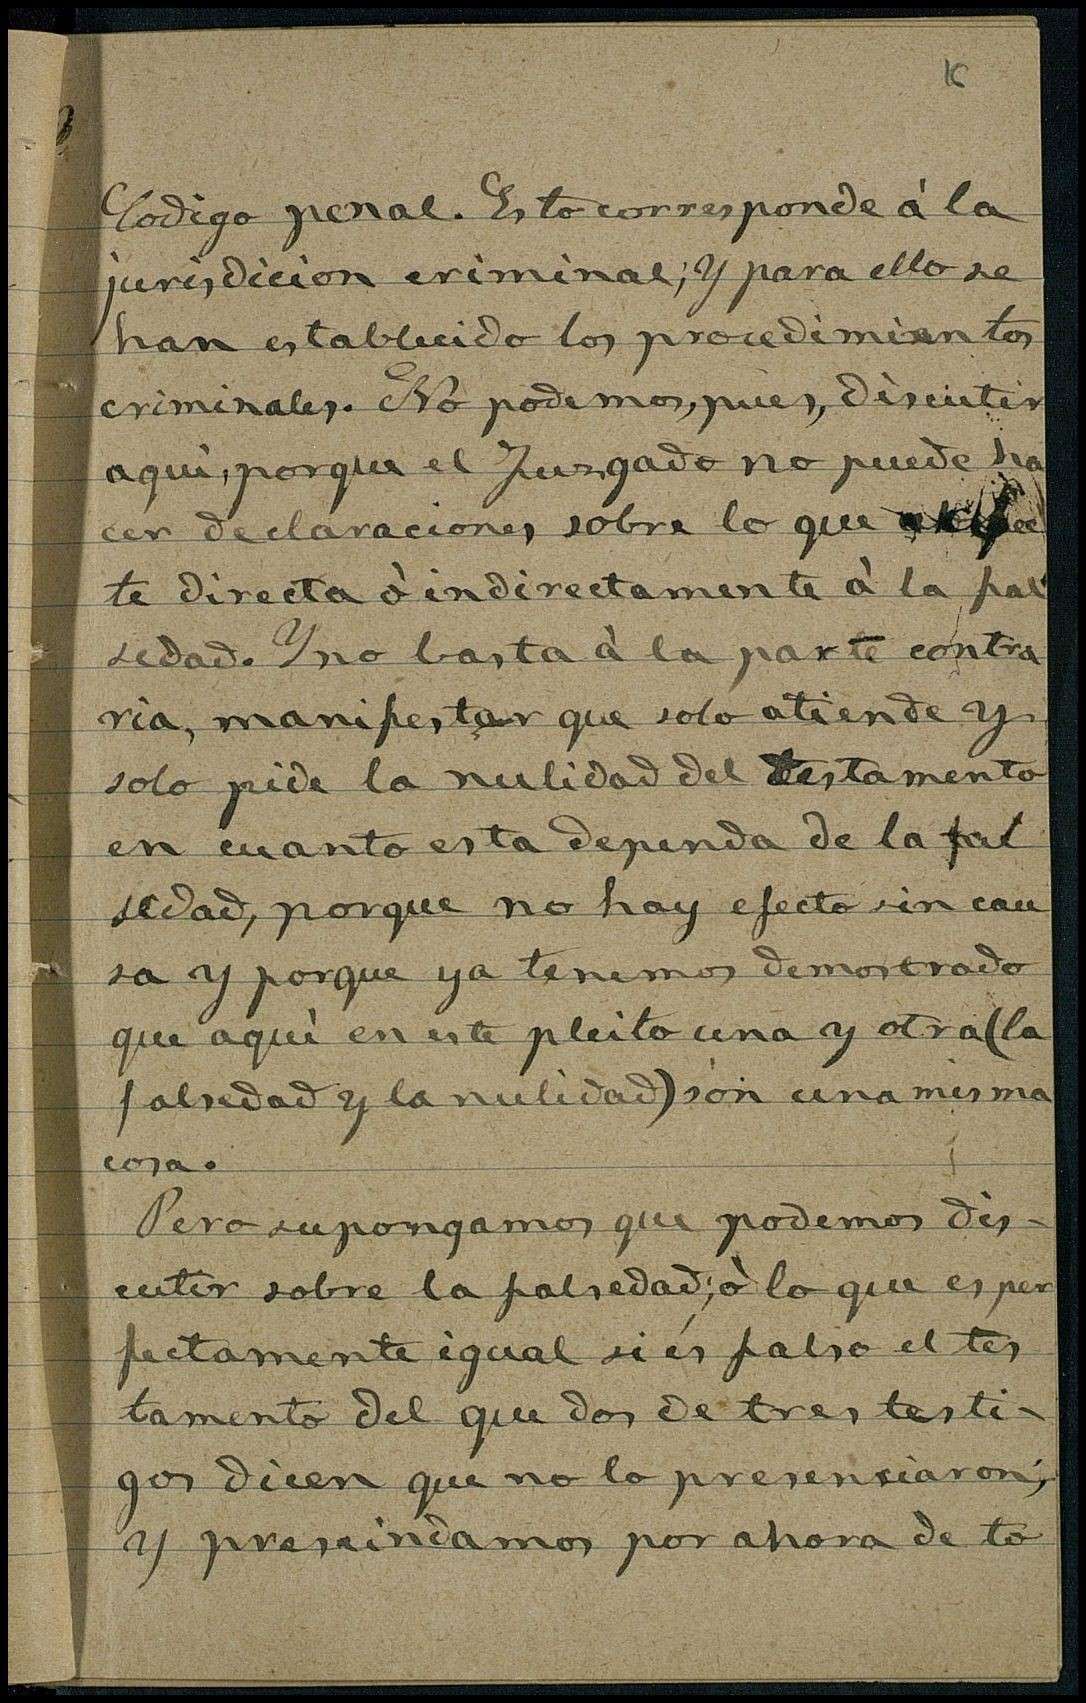 16
Codigo penal. Esto corresponde á la
jurisdicion criminal; y para ello se
han establecido los procedimientos
criminales. No podemos, pues, discutir
aquí, porque el Juzgado no puede ha
cer declaraciones sobre lo que
te directa ò indirectamente à la fal
sedad. Y no basta à la parte contra
ria, manifestar que solo atiende y
solo pide la nulidad del testamento
en cuanto esta dependa de la fal
sedad, porque no hay efecto sin cau
sa y porque ya tenemos demostrado
que aquì en este pleito una y otra (la
falsedad y la nulidad) són una misma
cosa.
Pero supongamos que podemos dis-
cutir sobre la falsedad; ò lo que es per
fectamente igual si és falso el tes
tamento del que dos de tres testi-
gos dicen que no lo presenciaron;
y prescindamos por ahora de to